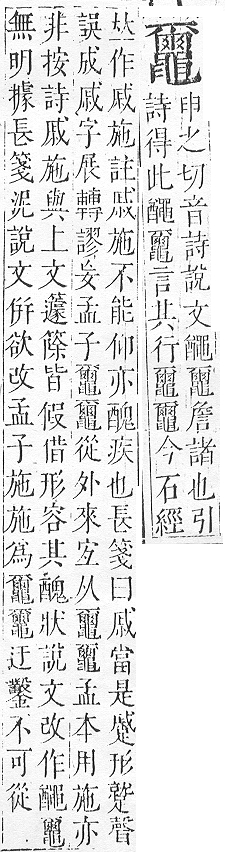 𪓿
申之切音詩說文𪓰𪓿詹諸也引
詩得此𪓰𪓿言其行𪓿𪓿今石經
𠀤作戚施註戚施不能仰亦醜疾也長箋曰戚當是蹙形聲
誤成戚字展轉謬妄孟子𪓿𪓿從外來宐从𪓿𪓿孟本用施亦
非按詩戚施與上文籧篨皆假借形容其醜狀說文改作𪓰𪓿
無明據長箋泥說文倂欲改孟子施施爲𪓿𪓿迂鑿不可從